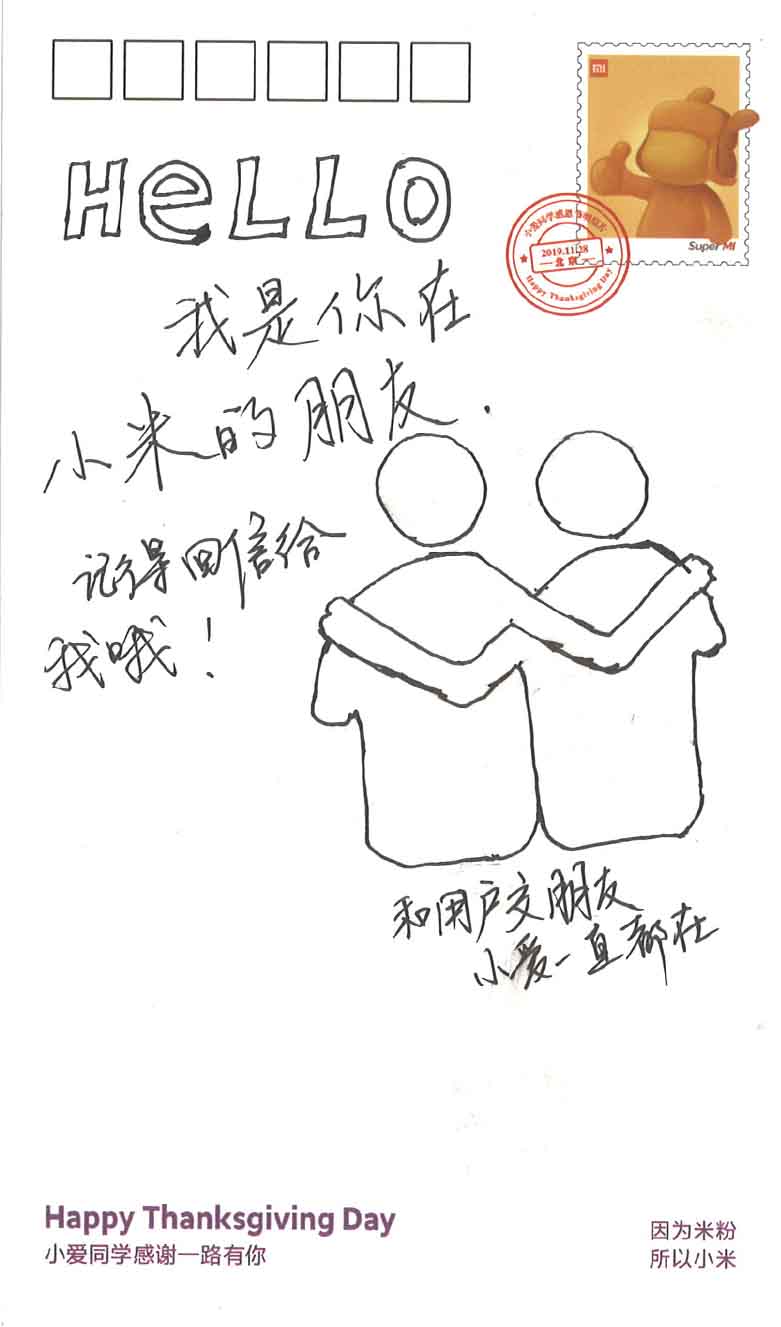 HeLLO
MI
Super MI
小爱同学感恩
2019.11.28
北京
Happy Thanksgiving Day
我是你在
小米的朋友.
记得回信给
我哦！
和用户交朋友
小爱一直都在
Happy Thanksgiving Day
小爱同学感谢一路有你
因为米粉
所以小米